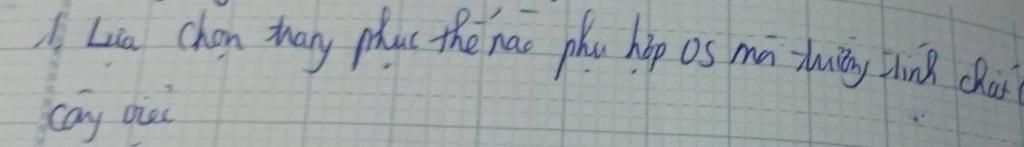 1, Lựa chọn trang phục thế nào phù hợp với môi trường tính chất
công việc